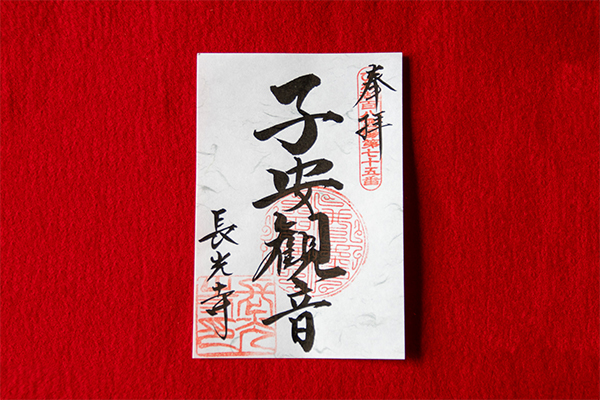 奉拝
第七十五番
子安観音
長光寺